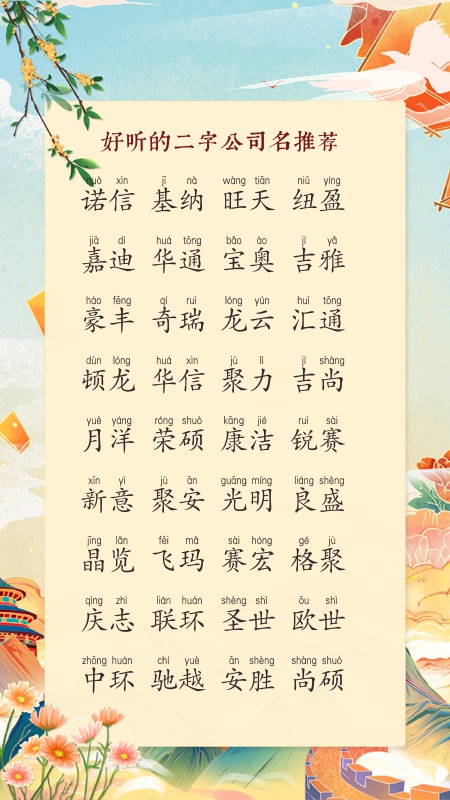 好听的二字公司名推荐
nuò xìn jī nà wàng tiān niǔ yíng
诺信 基纳 旺天 纽盈
jiā dí huá tōng bǎo ào jí yǎ
嘉迪 华通 宝奥 吉雅
háo fēng qí ruì lóng yún huì tōng
豪丰 奇瑞 龙云 汇通
dùn lóng huá xìn jù lì jí shàng
顿龙 华信 聚力 吉尚
yuè yáng róng shuò kāng jié ruì sài
月洋 荣硕 康洁 锐赛
xīn yì jù ān guāng míng liáng shèng
新意 聚安 光明 良盛
jīng lǎn fēi mǎ sài hóng gé jù
晶览 飞玛 赛宏 格聚
qìng zhì lián huán shèng shì ōu shì
庆志 联环 圣世 欧世
zhōng huán chí yuè ān shèng shàng shuò
中环 驰越 安胜 尚硕